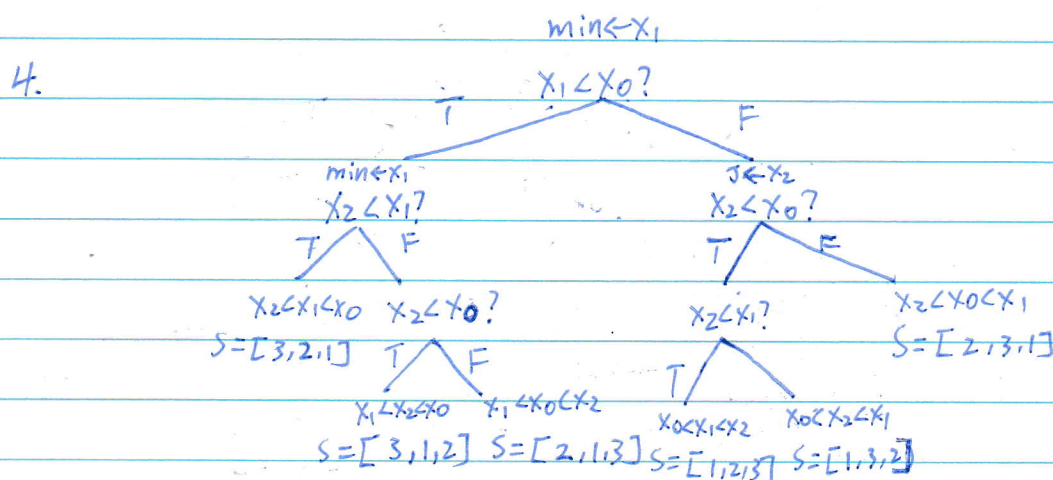 min←x₁
4.
x₁<x₀?
T F
min←x₁ J←x₂
x₂<x₁? x₂<x₀?
T F T F
x₂<x₁<x₀ x₂<x₀? x₂<x₁? x₂<x₀<x₁
S=[3,2,1] T F T S=[2,3,1]
x₁<x₂<x₀ x₁<x₀<x₂ x₀<x₁<x₂ x₀<x₂<x₁
S=[3,1,2] S=[2,1,3] S=[1,2,3] S=[1,3,2]